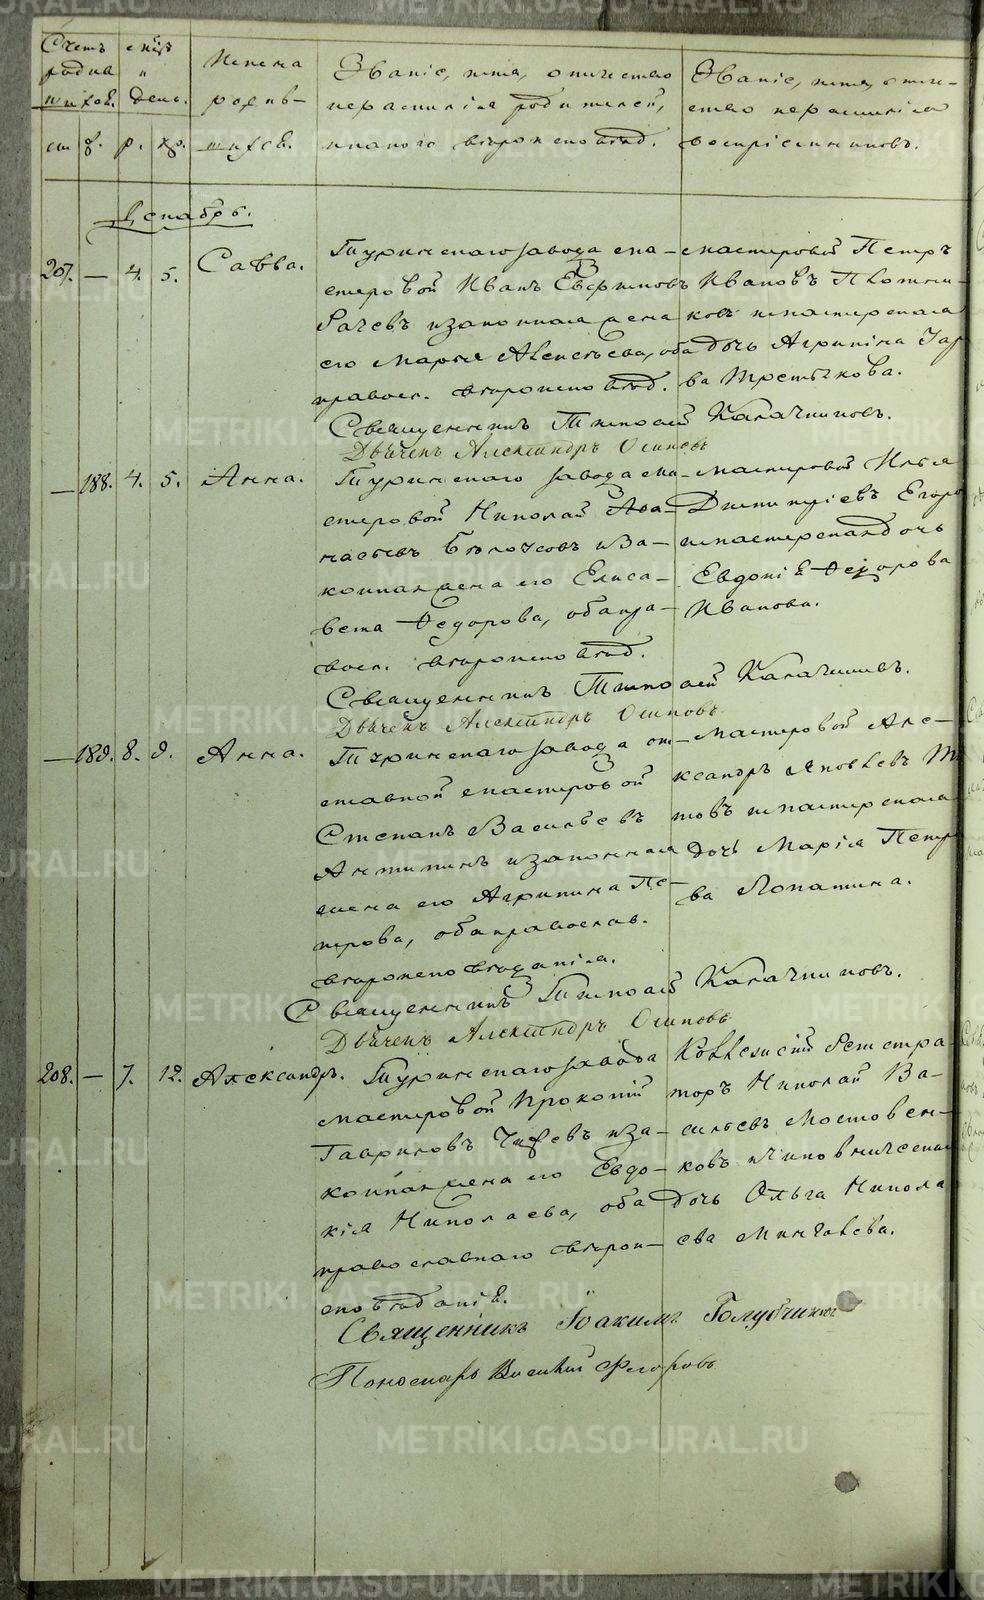 Счетъ
родив
шихся.
м. ж.
мѣсяцъ и день.
р. кр.
Имена
родив-
шихся.
Званіе, имя, отчество
и фамилія родителей,
и какого вѣроисповѣд.
Званіе, имя, отче-
ство и фамилія
воспріемниковъ.
Декабрь.
207. — 4. 5. Савва.
Туринскаго завода ма-
стеровой Иванъ Евфимовъ
и законная жена
его Марья Алексѣева, оба
правосл. вѣроисповѣд.
мастеровой Петръ
Ивановъ Плотни-
ковъ и мастерская
дочь Агрипина
ва Третьякова.
Священникъ Тимофей Калачниковъ.
Дьячекъ Александръ Осиповъ
— 188. 4. 5. Анна.
Туринскаго завода ма-
стеровой Николай Афа-
насьевъ и за-
конная жена его Елиса-
вета Федорова, оба пра-
восл. вѣроисповѣд.
мастеровой Илья
Дмитріевъ Егоро
и мастерская дочь
Евдокія Федорова
Иванова.
Священникъ Тимофей Калачниковъ.
Дьячекъ Александръ Осиповъ
— 189. 8. 9. Анна.
Туринскаго завода от-
ставной мастеровой
Степанъ Васильевъ
Антипинъ и законная
жена его Агрипина Пе-
трова, оба православ.
вѣроисповѣданія.
мастеровой Але-
ксандръ Яковлевъ
товъ и мастерская
дочь Марія Петро
ва Лопатина.
Священникъ Тимофей Калачниковъ.
Дьячекъ Александръ Осиповъ
208. — 7. 12. Александръ.
Туринскаго завода
мастеровой Прокопій
Гавриловъ и за-
конная жена его Евдо-
кія Николаева, оба
православнаго вѣрои-
сповѣданія.
Коллежскій Регистра-
торъ Николай Ва-
сильевъ Мостовен-
ковъ и чиновническая
дочь Ольга Никола
ева Мингалева.
Священникъ Іоакимъ Голубчиковъ
Пономарь Василій Федоровъ
METRIKI.GASO-URAL.RU